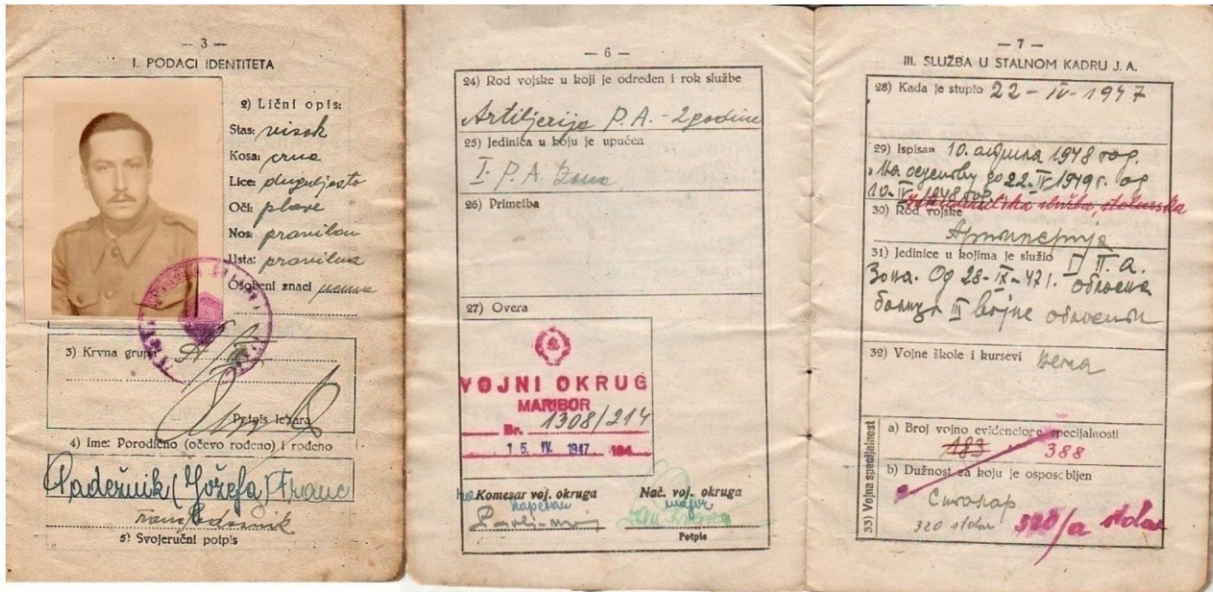 — 3 —
I. PODACI IDENTITETA
2) Lični opis:
Stas: visok
Kosa: crna
Lice: duguljasto
Oči: plave
Nos: pravilan
Usta: pravilna
Osobeni znaci nema
3) Krvna grupa
Potpis lekara
4) Ime: Porodično (očevo rođeno) i rođeno
(Jožefa) Franc
5) Svojeručni potpis
— 6 —
24) Rod vojske u koji je određen i rok službe
Artiljerija P.A. - 2 godine
25) Jedinica u koju je upućen
I. P.A. Zona
26) Primetba
27) Overa
VOJNI OKRUG
MARIBOR
Br. 1308/214
15. IV. 1947 194
Komesar voj. okruga
kapetan
Nač. voj. okruga
major
Potpis
— 7 —
III. SLUŽBA U STALNOM KADRU J. A.
28) Kada je stupio 22-IV-1947
29) Ispisan 10. априла 1948 год.
до 22-IV-1949 г. од
10-IV-1948 год.
služba,
30) Rod vojske
Артилерија
31) Jedinice u kojima je služio I П.А.
Зона. Од 28-IX-47 г.
III војне области
32) Vojne škole i kursevi нема
33) Vojna specijalnost
a) Broj vojno evidencione specijalnosti
183 388
b) Dužnost za koju je osposobljen
Столар
320 stolar 320/a stolar